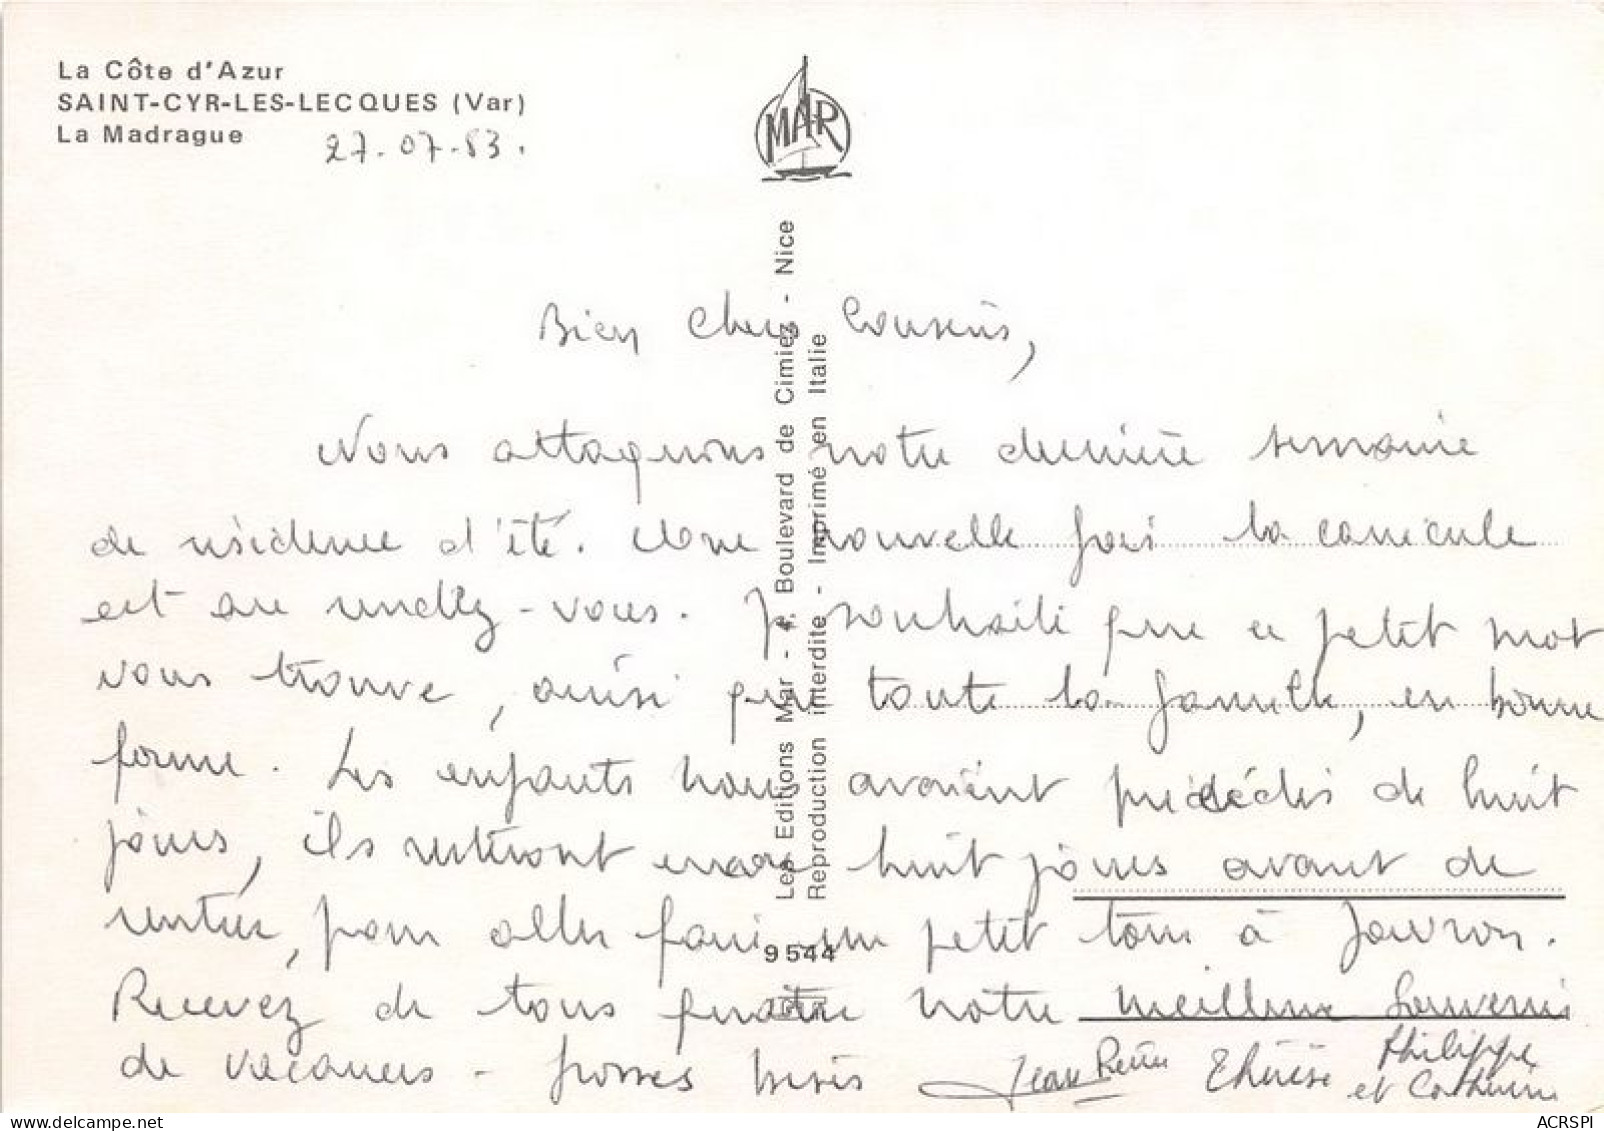 La Côte d'Azur
SAINT-CYR-LES-LECQUES (Var)
La Madrague
27.07.83.
MAR
Les Editions Mar - 4, Boulevard de Cimiez - Nice
Reproduction interdite - Imprimé en Italie
Bien Chers Cousins,
Nous attaquons notre dernière semaine
de résidence d'été. Une nouvelle fois la canicule
est au rendez-vous. Je souhaite que ce petit mot
vous trouve, ainsi que toute la famille, en bonne
forme. Les enfants nous avaient précédés de huit
jours, ils resteront encore huit jours avant de
rentrer, pour aller faire un petit tour à Jouvron.
Recevez de tous quatre notre meilleur souvenir
de vacances - grosses bises
Jean René Thérèse Philippe
et Catherine
9544
ACRSPI